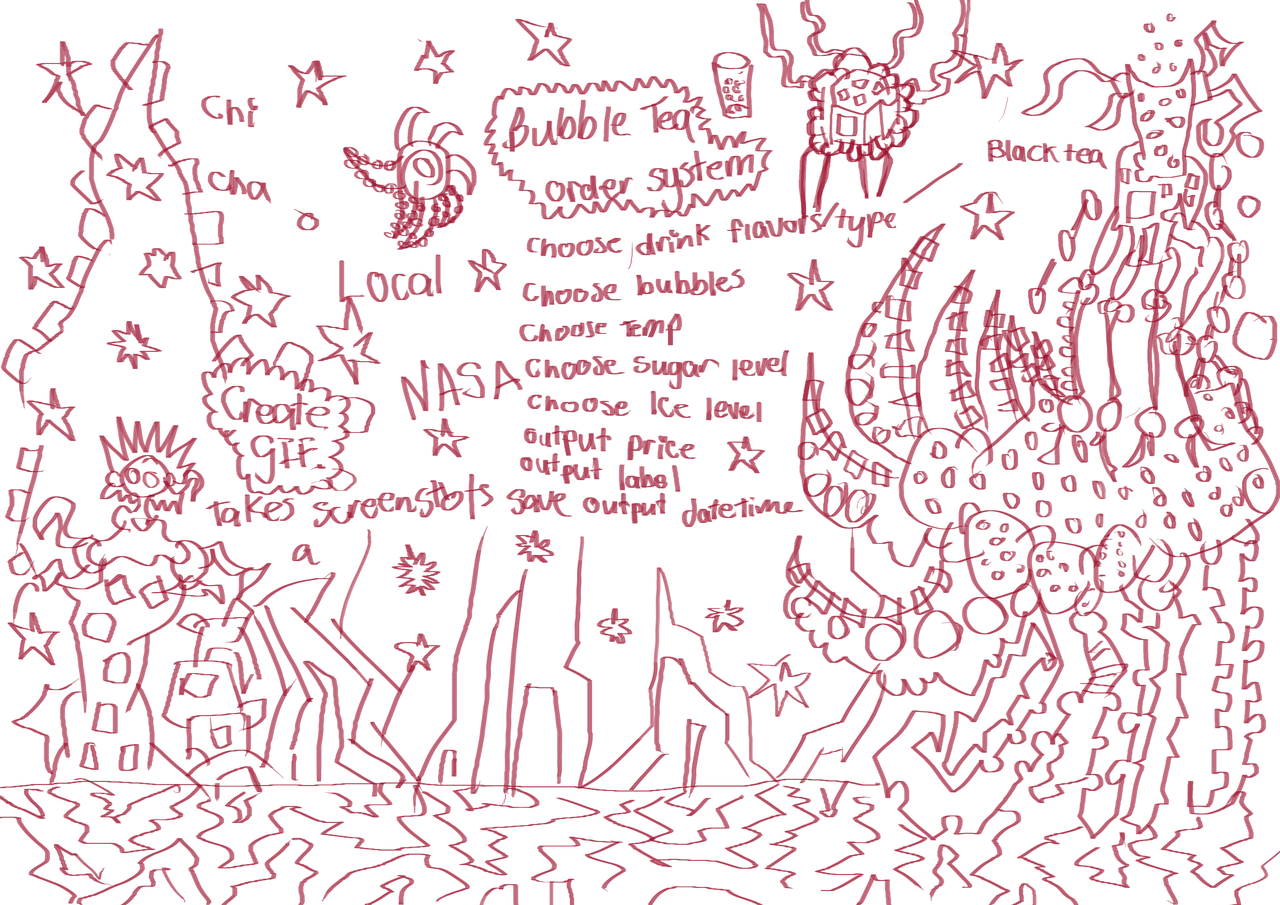 Chi
cha
Bubble Tea
order system
Black tea
choose drink flavors/type
Local
Choose bubbles
Choose Temp
NASA
Choose sugar level
Choose Ice level
Create
GIF
output price
output label
takes screenshots
save output datetime
a